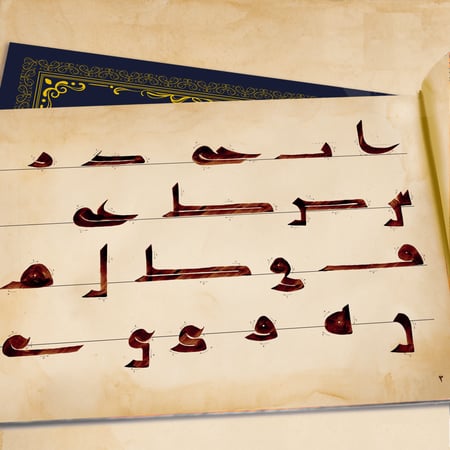 ا ب ح د ر
س ص ط ع
ف ق ك ل م
ن ه ه و ي
٣